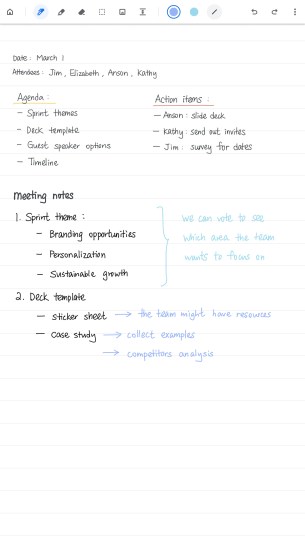 Date: March 1
Attendees: Jim, Elizabeth, Anson, Kathy
Agenda:
- Sprint themes
- Deck template
- Guest speaker options
- Timeline
Action items:
- Anson: slide deck
- Kathy: send out invites
- Jim: survey for dates
meeting notes
1. Sprint theme:
- Branding opportunities
- Personalization
- Sustainable growth
we can vote to see
which area the team
wants to focus on
2. Deck template
- sticker sheet → the team might have resources
- case study → collect examples
→ competitors analysis